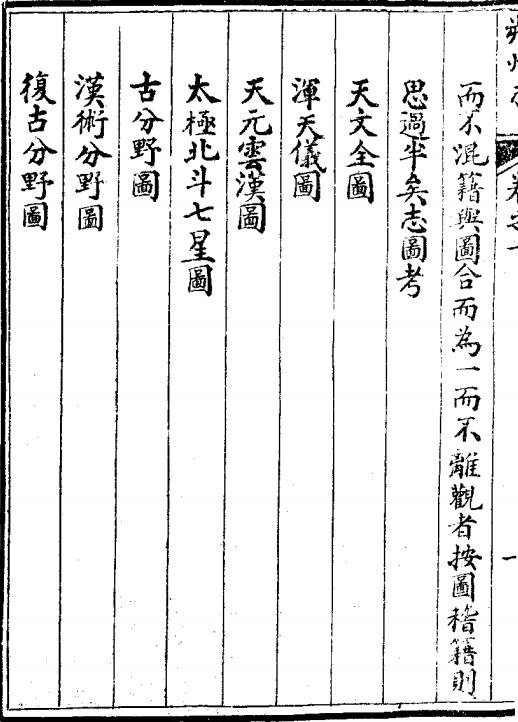 朔州志
卷之一
一
而不混籍與圖合而為一而不離觀者按圖稽籍則
思過半矣志圖考
天文全圖
渾天儀圖
天元雲漢圖
太極北斗七星圖
古分野圖
漢術分野圖
復古分野圖